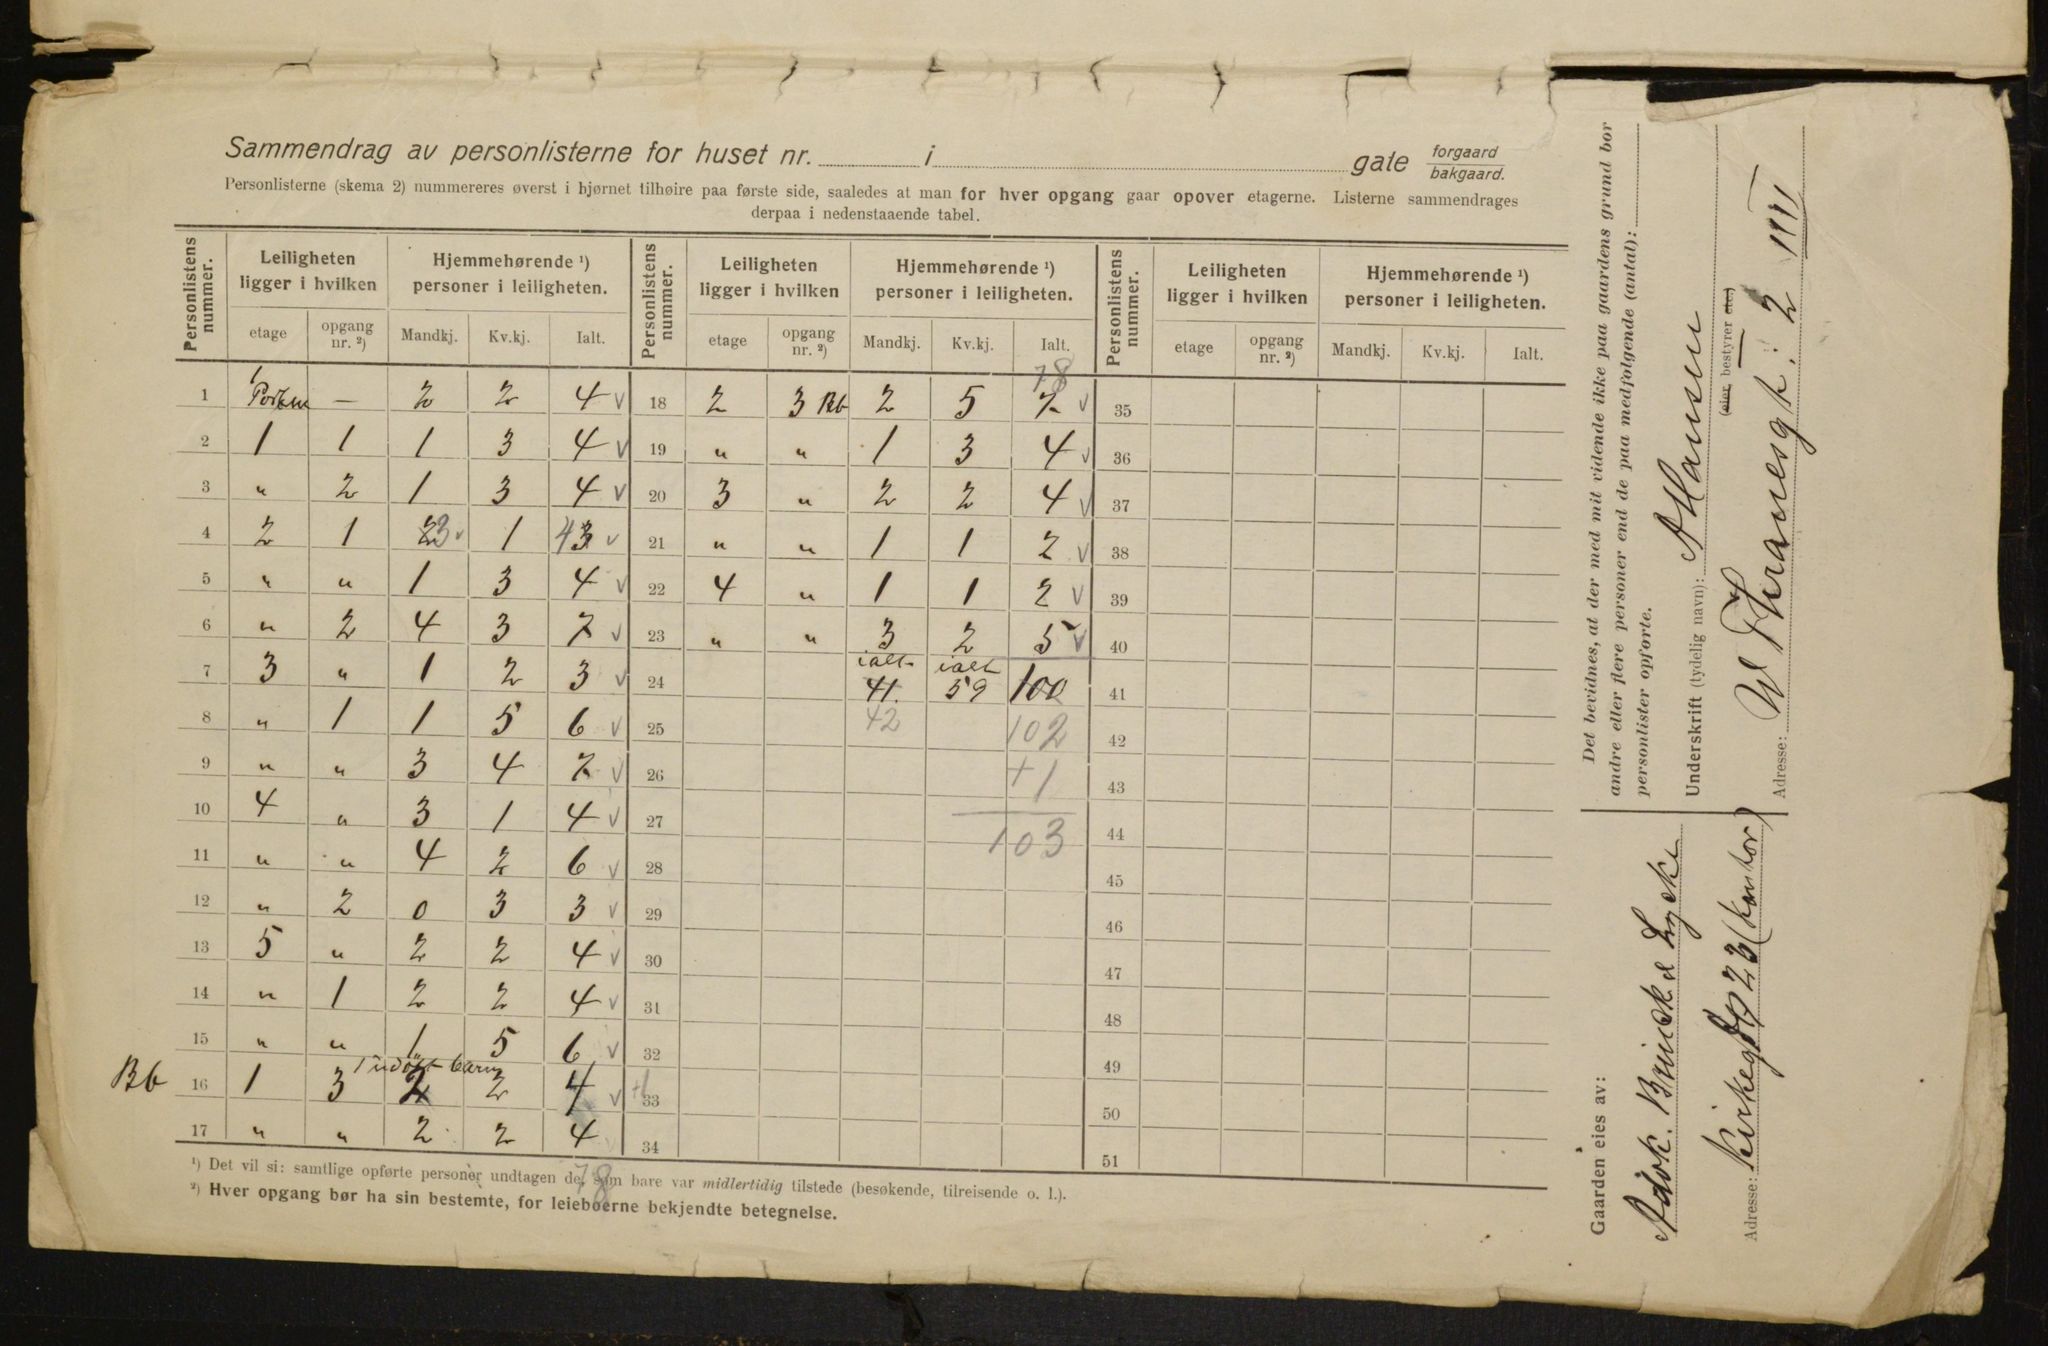 Sammendrag av personlisterne for huset nr. i gate forgaard bakgaard.
Personlisterne (skema 2) nummereres øverst i hjørnet tilhøire paa første side, saaledes at man for hver opgang gaar opover etagerne. Listerne sammendrages
derpaa i nedenstaaende tabel.
Personlistens nummer. Leiligheten ligger i hvilken Hjemmehørende ¹) personer i leiligheten. Personlistens nummer. Leiligheten ligger i hvilken Hjemmehørende ¹) personer i leiligheten. Personlistens nummer. Leiligheten ligger i hvilken Hjemmehørende ¹) personer i leiligheten.
etage opgang nr. ²) Mandkj. Kv.kj. Ialt. etage opgang nr. ²) Mandkj. Kv.kj. Ialt. etage opgang nr. ²) Mandkj. Kv.kj. Ialt.
78
1 — 2 2 4 v 18 2 3 Bb 2 5 7 v 35
2 1 1 1 3 4 v 19 " " 1 3 4 v 36
3 " 2 1 3 4 v 20 3 " 2 2 4 v 37
4 2 1 2 3 v 1 4 3 v 21 " " 1 1 2 v 38
5 " " 1 3 4 v 22 4 " 1 1 2 v 39
6 " 2 4 3 7 v 23 " " 3 2 5 v 40
7 3 " 1 2 3 v 24 ialt 41. ialt 59 100 41
8 " 1 1 5 6 v 25 42 102 42
9 " " 3 4 7 v 26 +1 43
10 4 " 3 1 4 v 27 103 44
11 " " 4 2 6 v 28 45
12 " 2 0 3 3 v 29 46
13 5 " 2 2 4 v 30 47
14 " 1 2 2 4 v 31 48
15 " " 1 5 6 v 32 49
1 barn
Bb 16 1 3 2 2 4 v +1 33 50
17 " " 2 2 4 34 51
78
¹) Det vil si: samtlige opførte personer undtagen de, som bare var midlertidig tilstede (besøkende, tilreisende o. l.).
²) Hver opgang bør ha sin bestemte, for leieboerne bekjendte betegnelse.
Det bevidnes, at der med mit vidende ikke paa gaardens grund bor
andre eller flere personer end de paa medfølgende (antal):
personlister opførte.
Underskrift (tydelig navn): A Hansen
(eier, bestyrer etc.)
Adresse: W Thranesgt. 2 IIII
Gaarden eies av:
Adok. Brinck & Lycke
Adresse: Kirkegt 23 (Kontor)